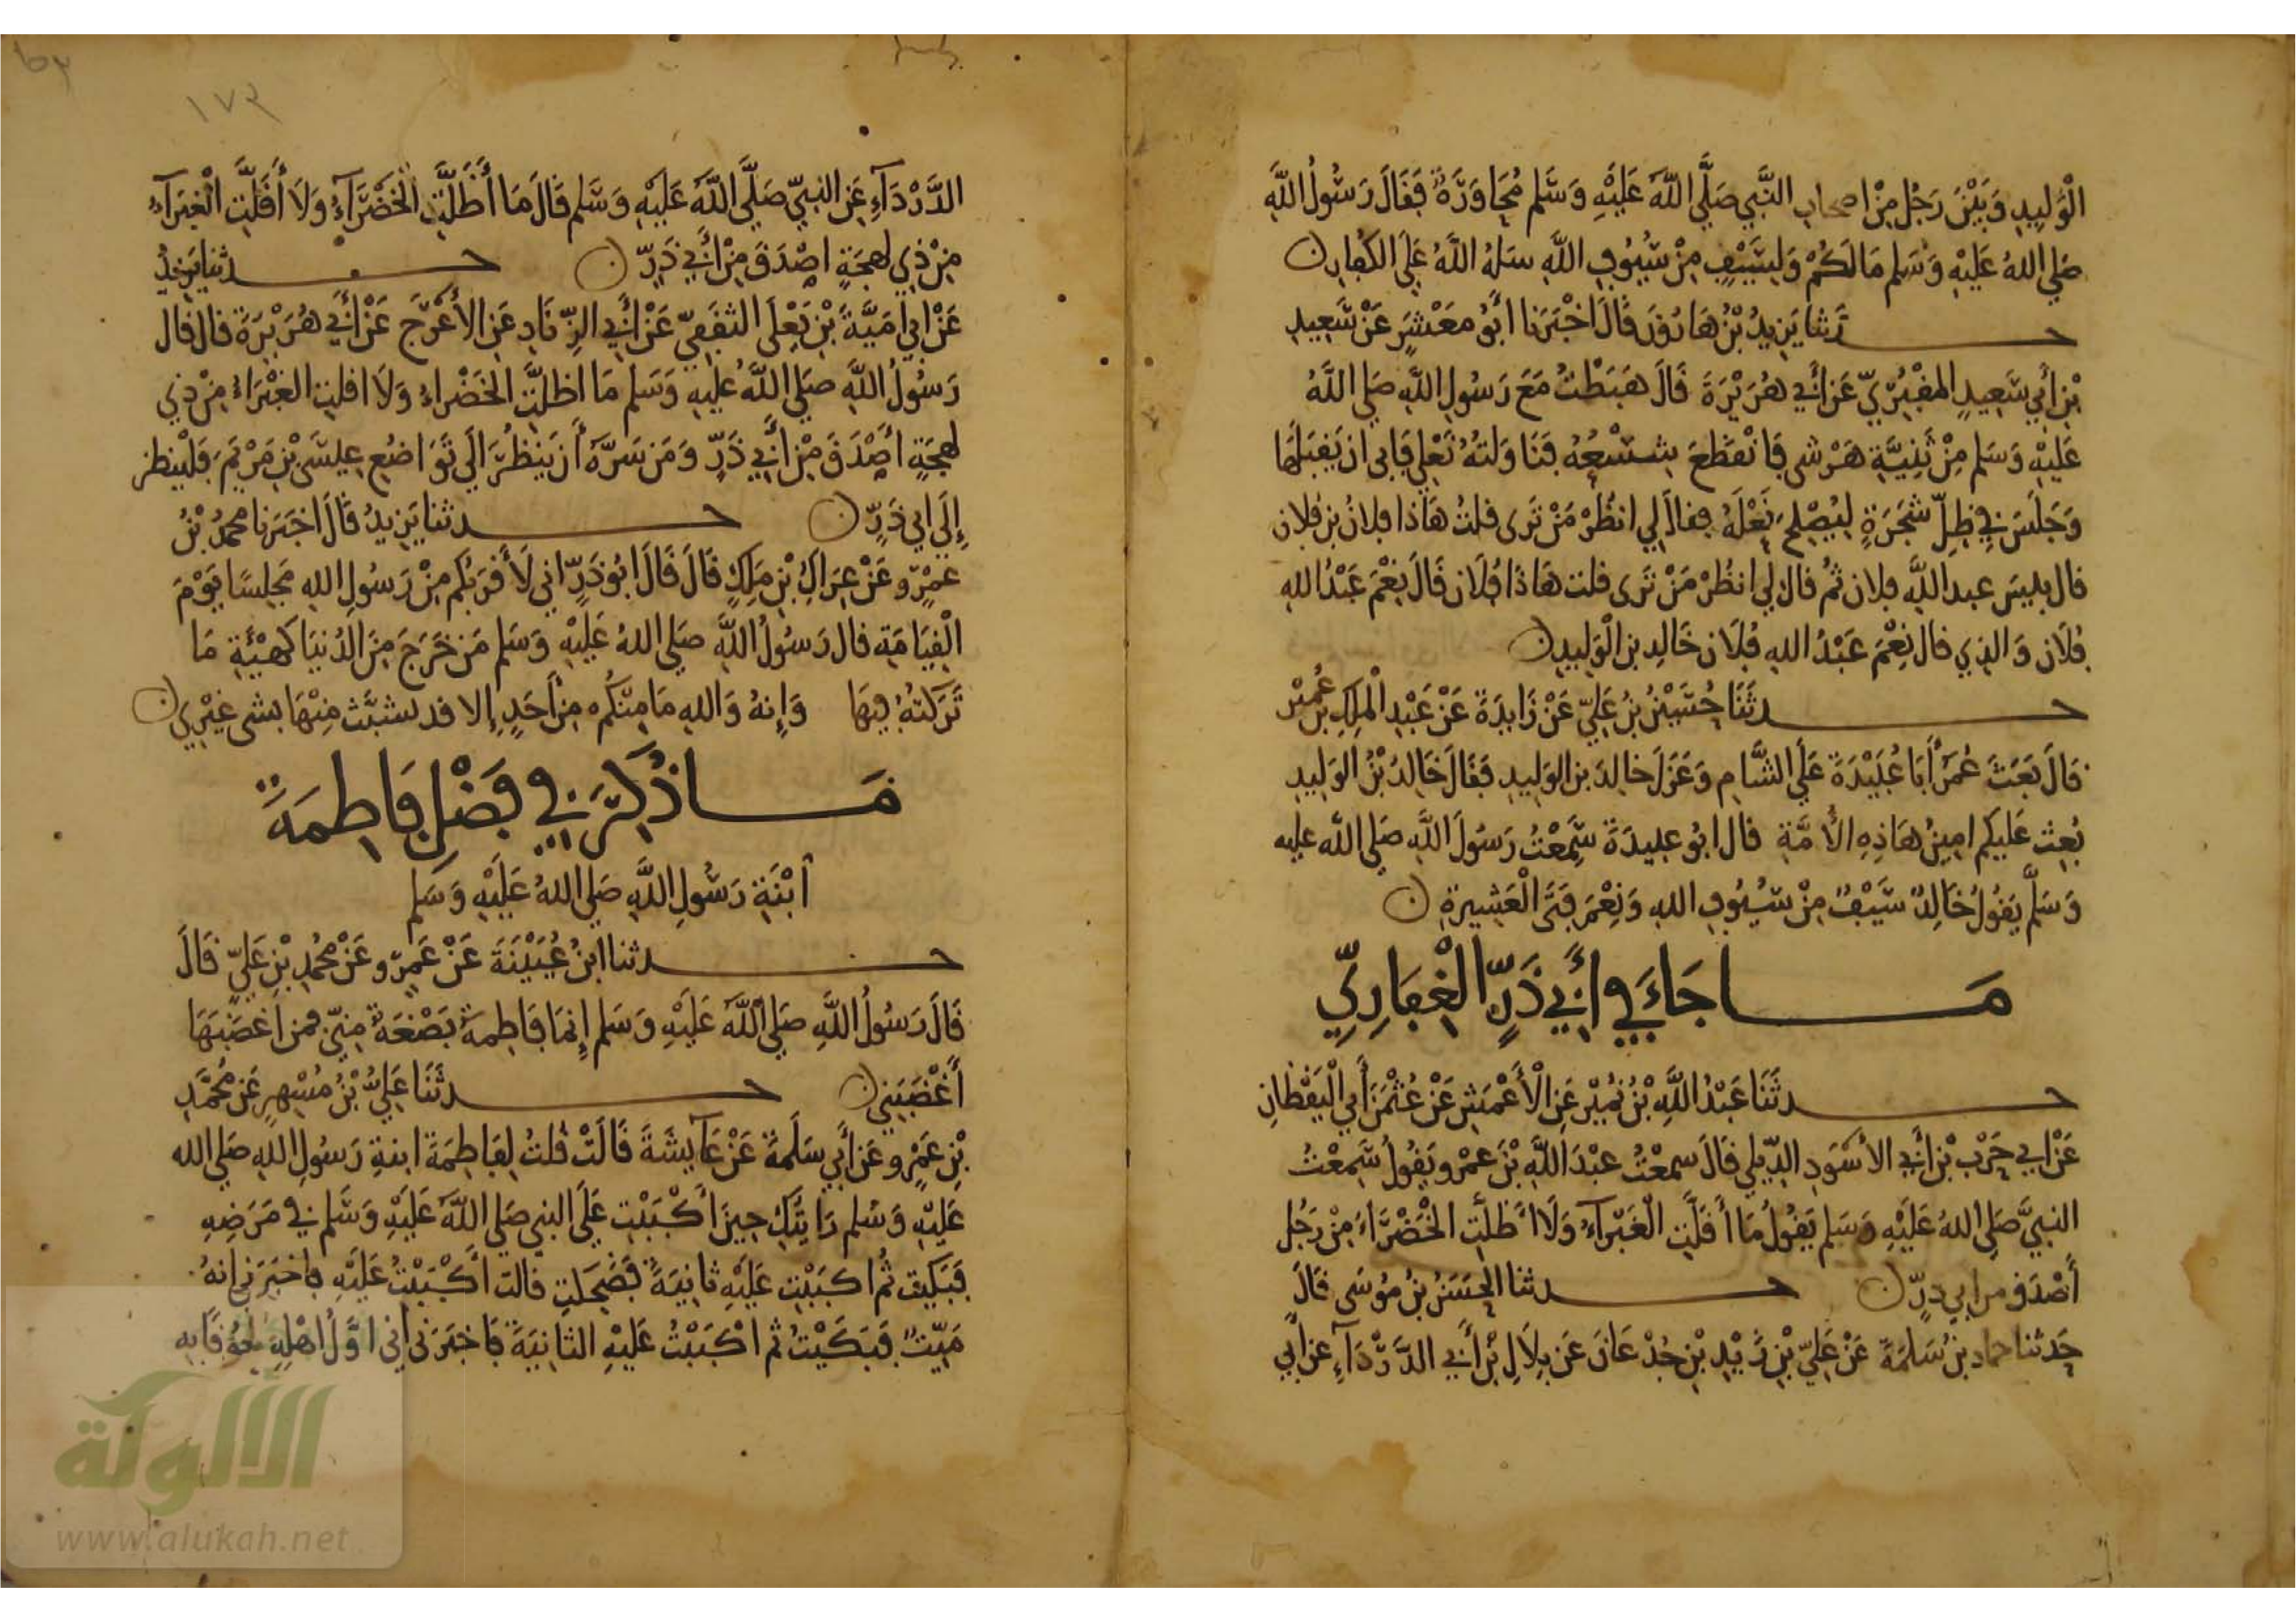 الْوَلِيدِ وَبَيْنَ رَجُلٍ مِنْ اصحاب النَّبِي صَلَّى اللَّهُ عَلَيْهِ وَسَلَّم مُحَاوَرَةٌ فَقَالَ رَسُولُ اللَّهِ
صَلى اللهُ عَلَيْهِ وَسَلم مَا لَكُمْ وَلِسَيْفٍ مِنْ سُيُوفِ اللَّهِ سَلهُ اللَّهُ عَلَى الكُفارِ
حدثنا يَزِيدُ بْنُ هَارُونَ قَالَ اخْبَرَنا أَبُو مَعْشَرٍ عَنْ سَعِيدِ
بْنِ أَبِي سَعِيدٍ المقْبُرِيّ عَنْ أَبِي هُرَيْرَةَ قَالَ هَبَطْتُ مَعَ رَسُولِ اللَّهِ صَلى اللَّهُ
عَلَيْهِ وَسَلم مِنْ ثَنِيَّةِ هَرْشى فَانْقَطَعَ شِسْعُهُ فَنَاوَلتهُ نَعْلِي فَابى ان يَقبَلَهَا
وَجَلَسَ فِي ظِلِّ شَجَرَةٍ لِيُصْلِحَ نَعْلَهُ فقال لِي انظُرْ مَنْ تَرى قلتُ هَاذا فلانُ بن فلان
قال بيسَ عبد اللَّهِ فلان ثمُ قال لي انظُرْ مَنْ تَرى قلت هَاذَا فُلَان قَالَ نِعْمَ عَبْدُ اللهِ
فُلَان وَالذِي قال نِعْمَ عَبْدُ اللهِ فُلَان خَالِد بن الْوَلِيدِ
حدثَنَا حُسَيْنُ بْنُ عَلِيّ عَنْ زَايِدَةَ عَنْ عَبْدِ الْمَلِكِ بْنِ عُمَيْر
قَالَ بَعَثَ عُمَرُ أَبَا عُبَيْدَةَ عَلَى الشَّامِ وَعَزَلَ خالِدَ بن الوَلِيدِ فَقَالَ خَالِدُ بْنُ الوَلِيدِ
بُعِثَ عَلَيكم امِينُ هَاذِهِ الأُمَّةِ قال ابُو عبيدَةَ سَمِعْتُ رَسُولَ اللَّهِ صَلى الله عليه
وَسَلَّم يَقُولُ خَالِدٌ سَيْفٌ مِنْ سُيُوفِ اللهِ وَنِعْمَ فَتَى الْعَشِيرَةِ
مَا جَاءَ فِي أَبِي ذَرٍّ الْغِفَارِيِّ
حدثَنَا عَبْدُ اللَّهِ بْنُ نُمَيْر عَنِ الْأَعْمَشِ عَنْ عُثْمَنَ أَبِي الْيَقْظَانِ
عَنْ ابي حَرْبِ بْنِ أَبِي الأسْوَدِ الدِّيلي قَالَ سمعْتُ عبْدَ اللَّهِ بْنَ عَمْرو يَقُولُ سَمِعْتُ
النبيَّ صَلى اللهُ عَلَيْهِ وَسَلم يَقُولُ مَا أَقَلَّتِ الْغَبْرَآءُ وَلَا أَظَلَّتِ الْخَضْرَاءُ مِنْ رَجُل
أَصْدَق من ابي ذرّ حدثنا الحَسَنُ بنُ مُوسَى قَالَ
حَدثنا حماد بنُ سَلَمَةَ عَنْ عَلِيّ بْنِ زَيْدِ بْنِ جُدْعَانَ عَن بِلَالِ بْنِ أَبِي الدَّرْدَآءِ عن أبي
١٧٣
الدَّرْدَآءِ عَنِ النبيّ صَلَّى اللَّهُ عَلَيْهِ وَسَلم قَالَ مَا أَظَلَّتِ الْخَضْرَآءُ وَلَا أَقَلَّتِ الْغَبْرَآءُ
مِنْ ذِي لهجَةٍ اصْدَقَ مِنْ أَبِي ذَرٍّ حدثنا يَزِيدُ
عَنْ ابي امَيَّةَ بْنِ يَعْلَى الثقَفِيّ عَنْ أَبِي الزّنَادِ عَنِ الأَعْرَجِ عَنْ أَبِي هُرَيْرَةَ قال قال
رَسُولُ اللَّهِ صَلى اللَّهُ عَليهِ وَسَلم مَا اظلتِ الخَضْراءُ وَلَا اقلتِ الغَبْرَاءُ مِنْ ذِي
لهجَةٍ أَصْدَقَ مِنْ أَبِي ذَرٍّ وَمَن سَرَّهُ أَن يَنظُرَ الَى تَوَاضُعِ عِيسَى بْنِ مَرْيَمَ فَلْيَنظر
إِلَى ابي ذَرٍّ حدثنا يَزِيدُ قَالَ اخبَرَنا محمدُ بْنُ
عَمْرٍو عَنْ عِرَاكِ بْنِ مَلِكٍ قَالَ قَالَ ابُو ذَرٍّ انى لَأَقرَبُكم مِنْ رَسُولِ اللهِ مَجلِسًا يَوْمَ
الْقِيَامَةِ قال رَسُولُ اللَّهِ صَلى اللهُ عَلَيْهِ وَسَلم مَن خَرَجَ مِنَ الدُنيَا كَهَيْئَةِ مَا
تَرَكتهُ فِيهَا وَإِنهُ وَاللهِ مَا مِنكُم مِنْ أَحَدٍ إِلا قد تشبَّثَ مِنْهَا بشى غيْرِي
مَا ذُكِرَ فِي فَضْلِ فَاطِمَةَ
ابْنَةِ رَسُولِ اللَّهِ صَلى اللهُ عَلَيْهِ وَسَلم
حدثنا ابنُ عُيَيْنَةَ عَنْ عَمرو عَنْ محُمدِ بْنِ عَلِيّ قَالَ
قَالَ رَسُولُ اللَّهِ صَلى اللَّهُ عَلَيْهِ وَسَلم إِنمَا فَاطِمَةُ بَضْعَةٌ مِنِّي فمن أَغضَبَهَا
أَغْضَبَنِي حدثَنَا عَلِيُّ بْنُ مُسْهِرٍ عَن مُحمَّدِ
بْنِ عَمْرٍو عَن أَبِي سَلَمَةَ عَنْ عَآيِشَةَ قَالَتْ قُلتُ لِفَاطِمَةَ ابنةِ رَسُولِ اللهِ صَلى الله
عَليْهِ وَسَلم رَايتُكِ حِينَ أَكْبَبْتِ عَلَى النبي صَلى اللَّهُ عَلَيْهِ وَسَلم فِي مَرَضِهِ
فَبَكَيْتِ ثُم اكبَبْتِ عَلَيْهِ ثَانِيَةً فَضَحِكتِ قالت أَكْبَبْتُ عَلَيْهِ فاخبَرَنى انهُ
مَيِّتٌ فَبَكَيْتُ ثم اكْبَبْتُ عَلَيْهِ الثانيَةَ فَاخبَرَنى أَنى اوَّلُ اهْلِهِ لحُوقًا بِهِ
الألوكة
www.alukah.net